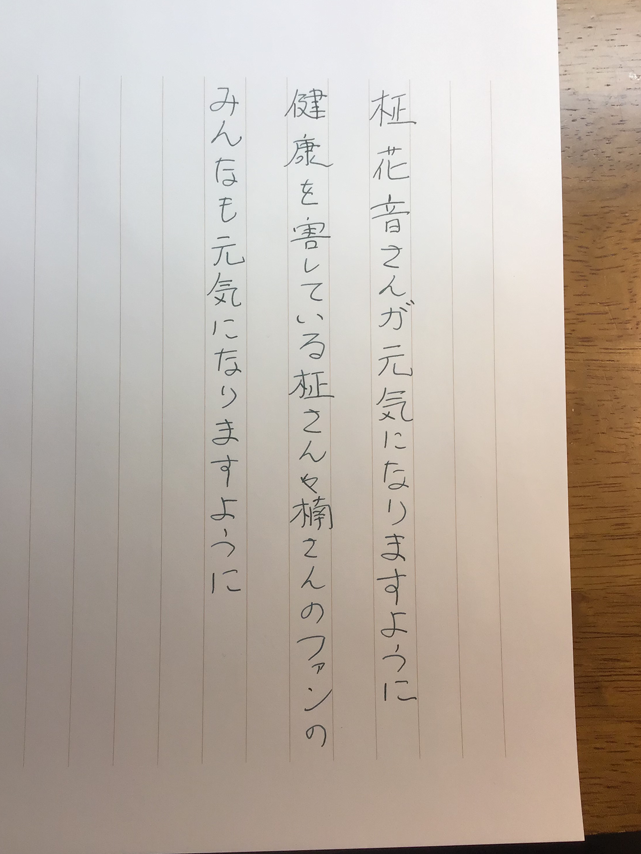 柾花音さんが元気になりますように
健康を害している柾さんや楠さんのファンの
みんなも元気になりますように